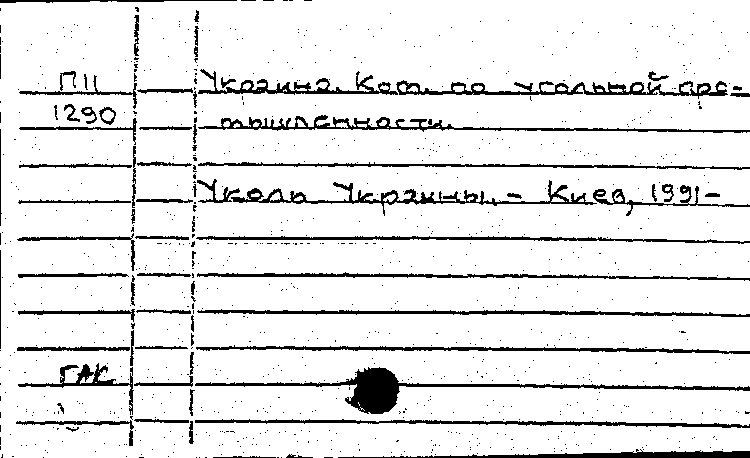 П11 Украина. Ком. по угольной про-
1290 мышленности.
Уголь Украины. – Киев, 1991–
ГАК